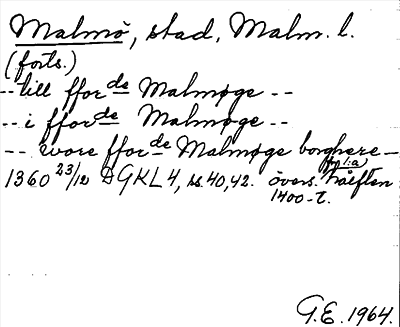 Malmö, stad, Malm. l.
(forts.)
-- till fforde Malmøge --
-- i fforde Malmøge --
-- wore fforde Malmøge borghere --
1360 23/12 DGKL 4, ss. 40, 42. övers. hälften
1400-t.
G.E. 1964.